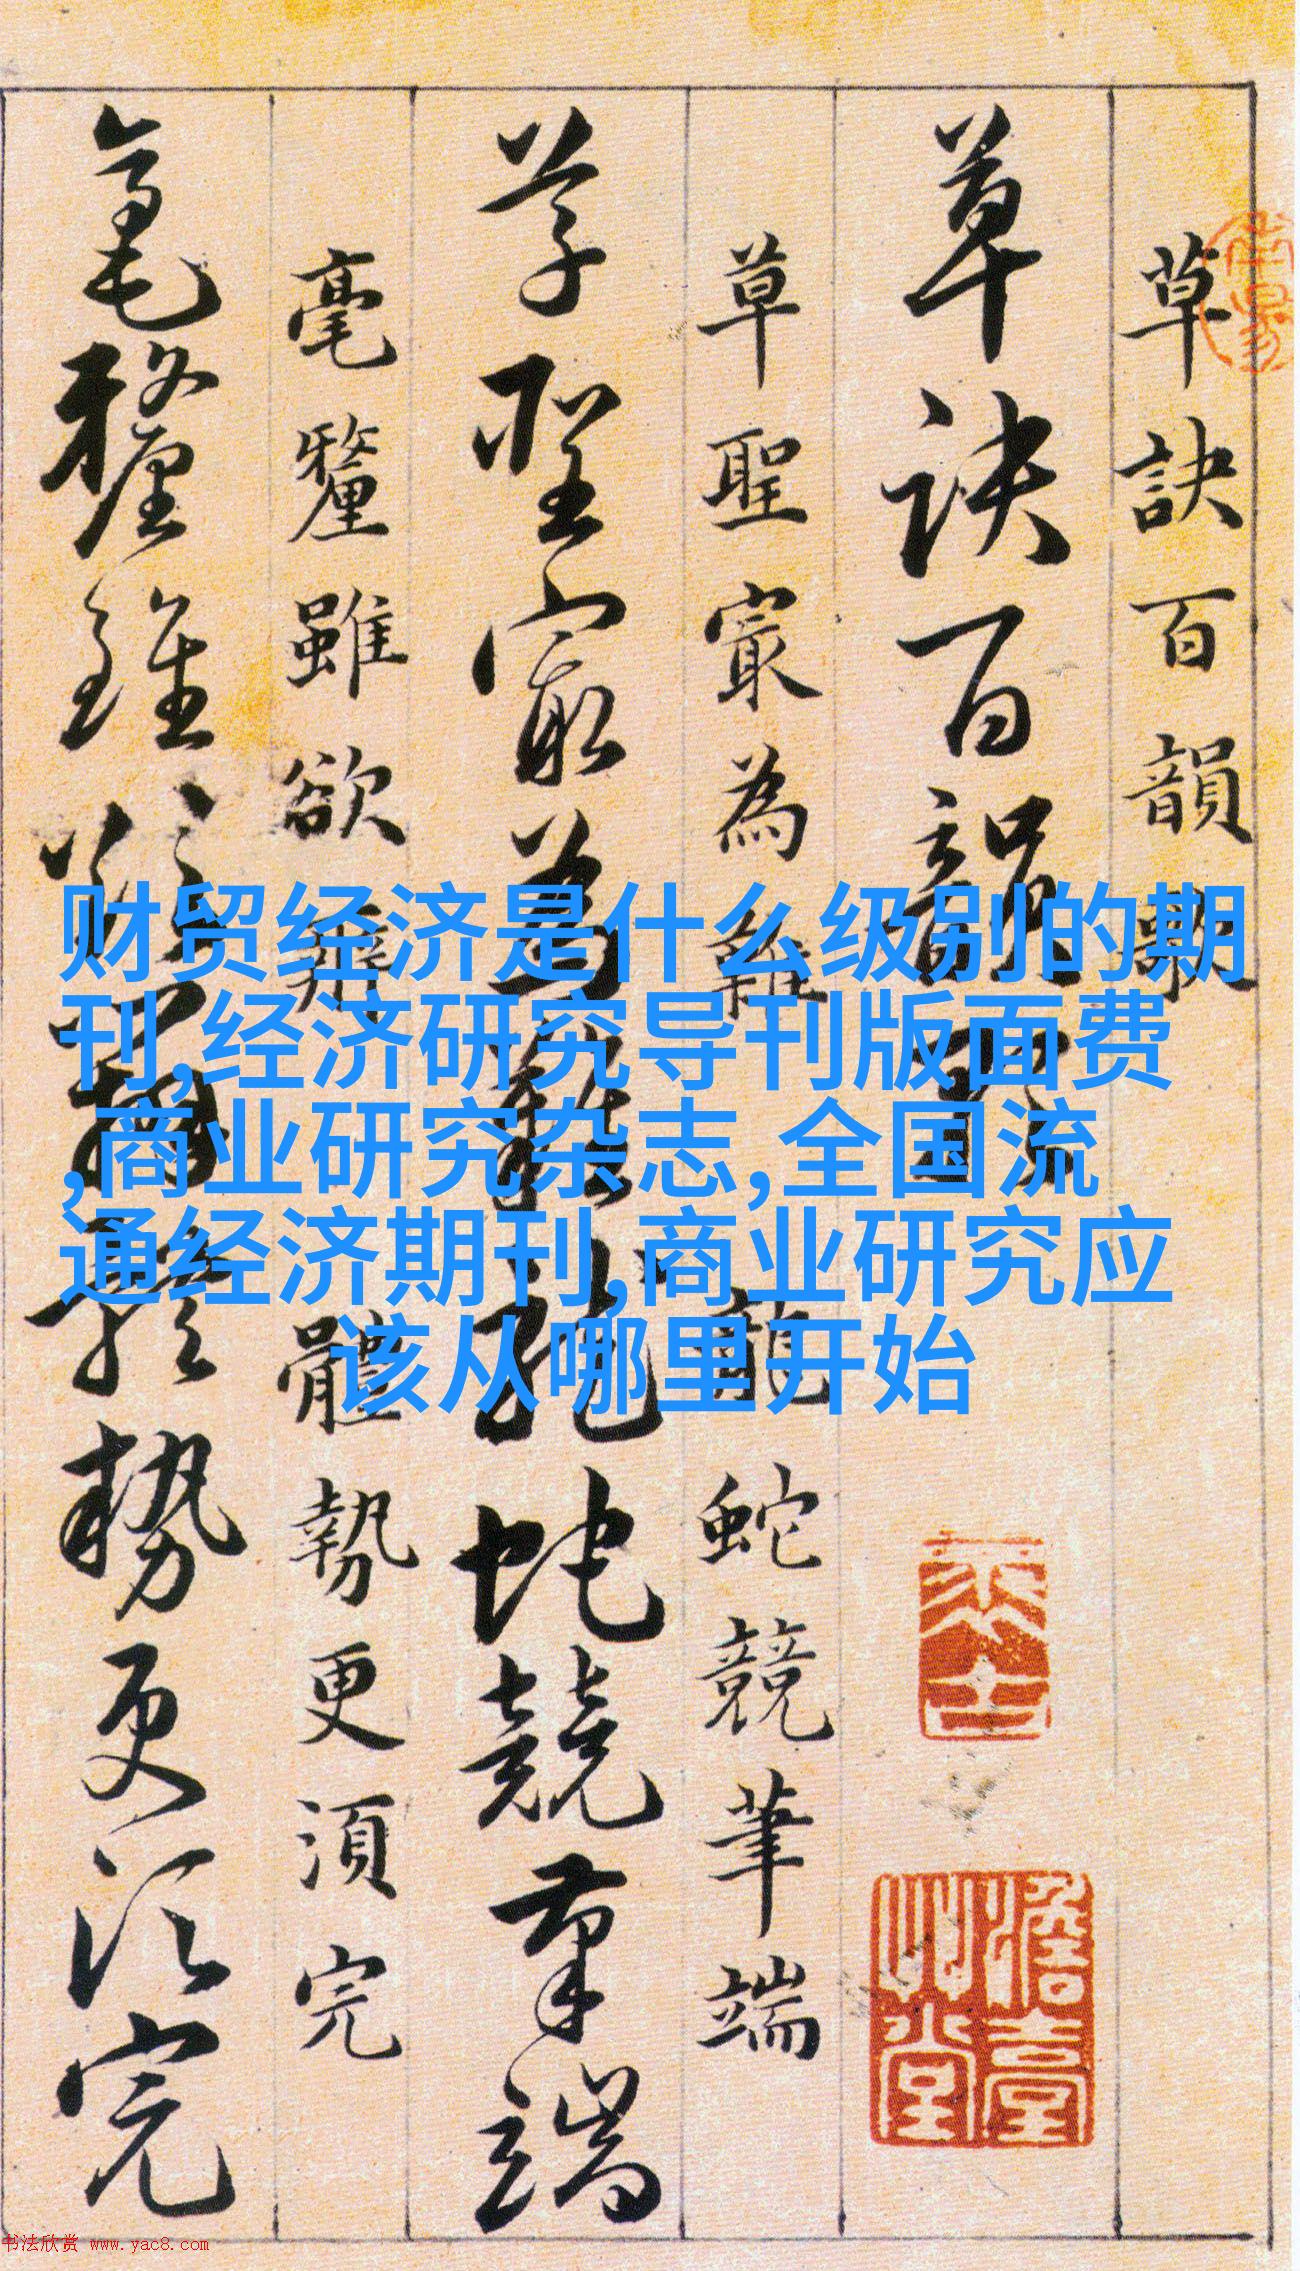 草訣百韻歌
草訣百韻歌
草聖冣為難
龍蛇競筆端
草聖冣為難龍蛇競筆端
毫釐雖欲辨
體勢更須完
毫釐雖欲辨體勢更須完
财贸经济是什么级别的期
刊,经济研究导刊版面费
,商业研究杂志,全国流
通经济期刊,商业研究应
该从哪里开始
书法欣赏 www.yac8.com